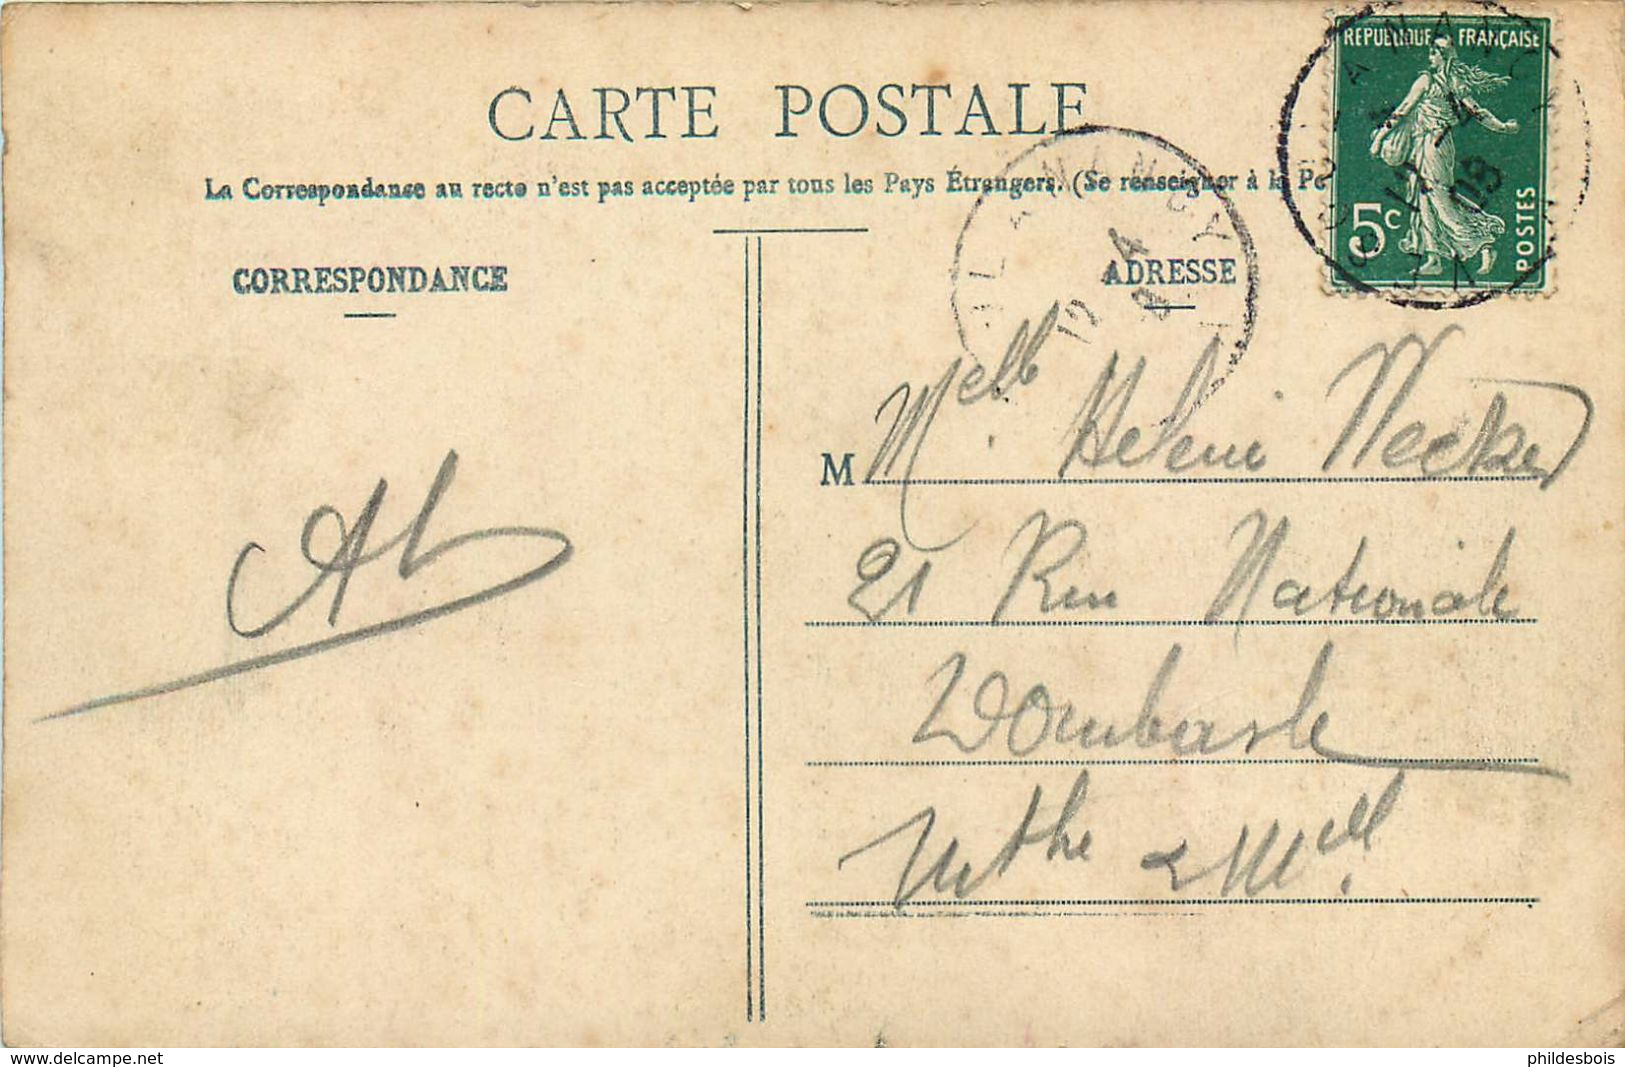 CARTE POSTALE
La Correspondance au recto n'est pas acceptée par tous les Pays Étrangers. (Se renseigner à la Po
REPUBLIQUE FRANÇAISE
5c
POSTES
12 - 4
08
12 4
CORRESPONDANCE
ADRESSE
M Melle Helene Necker
21 Rue Nationale
Dombasle
Mthe & Mlle
AL
delcampe.net
phildesbois